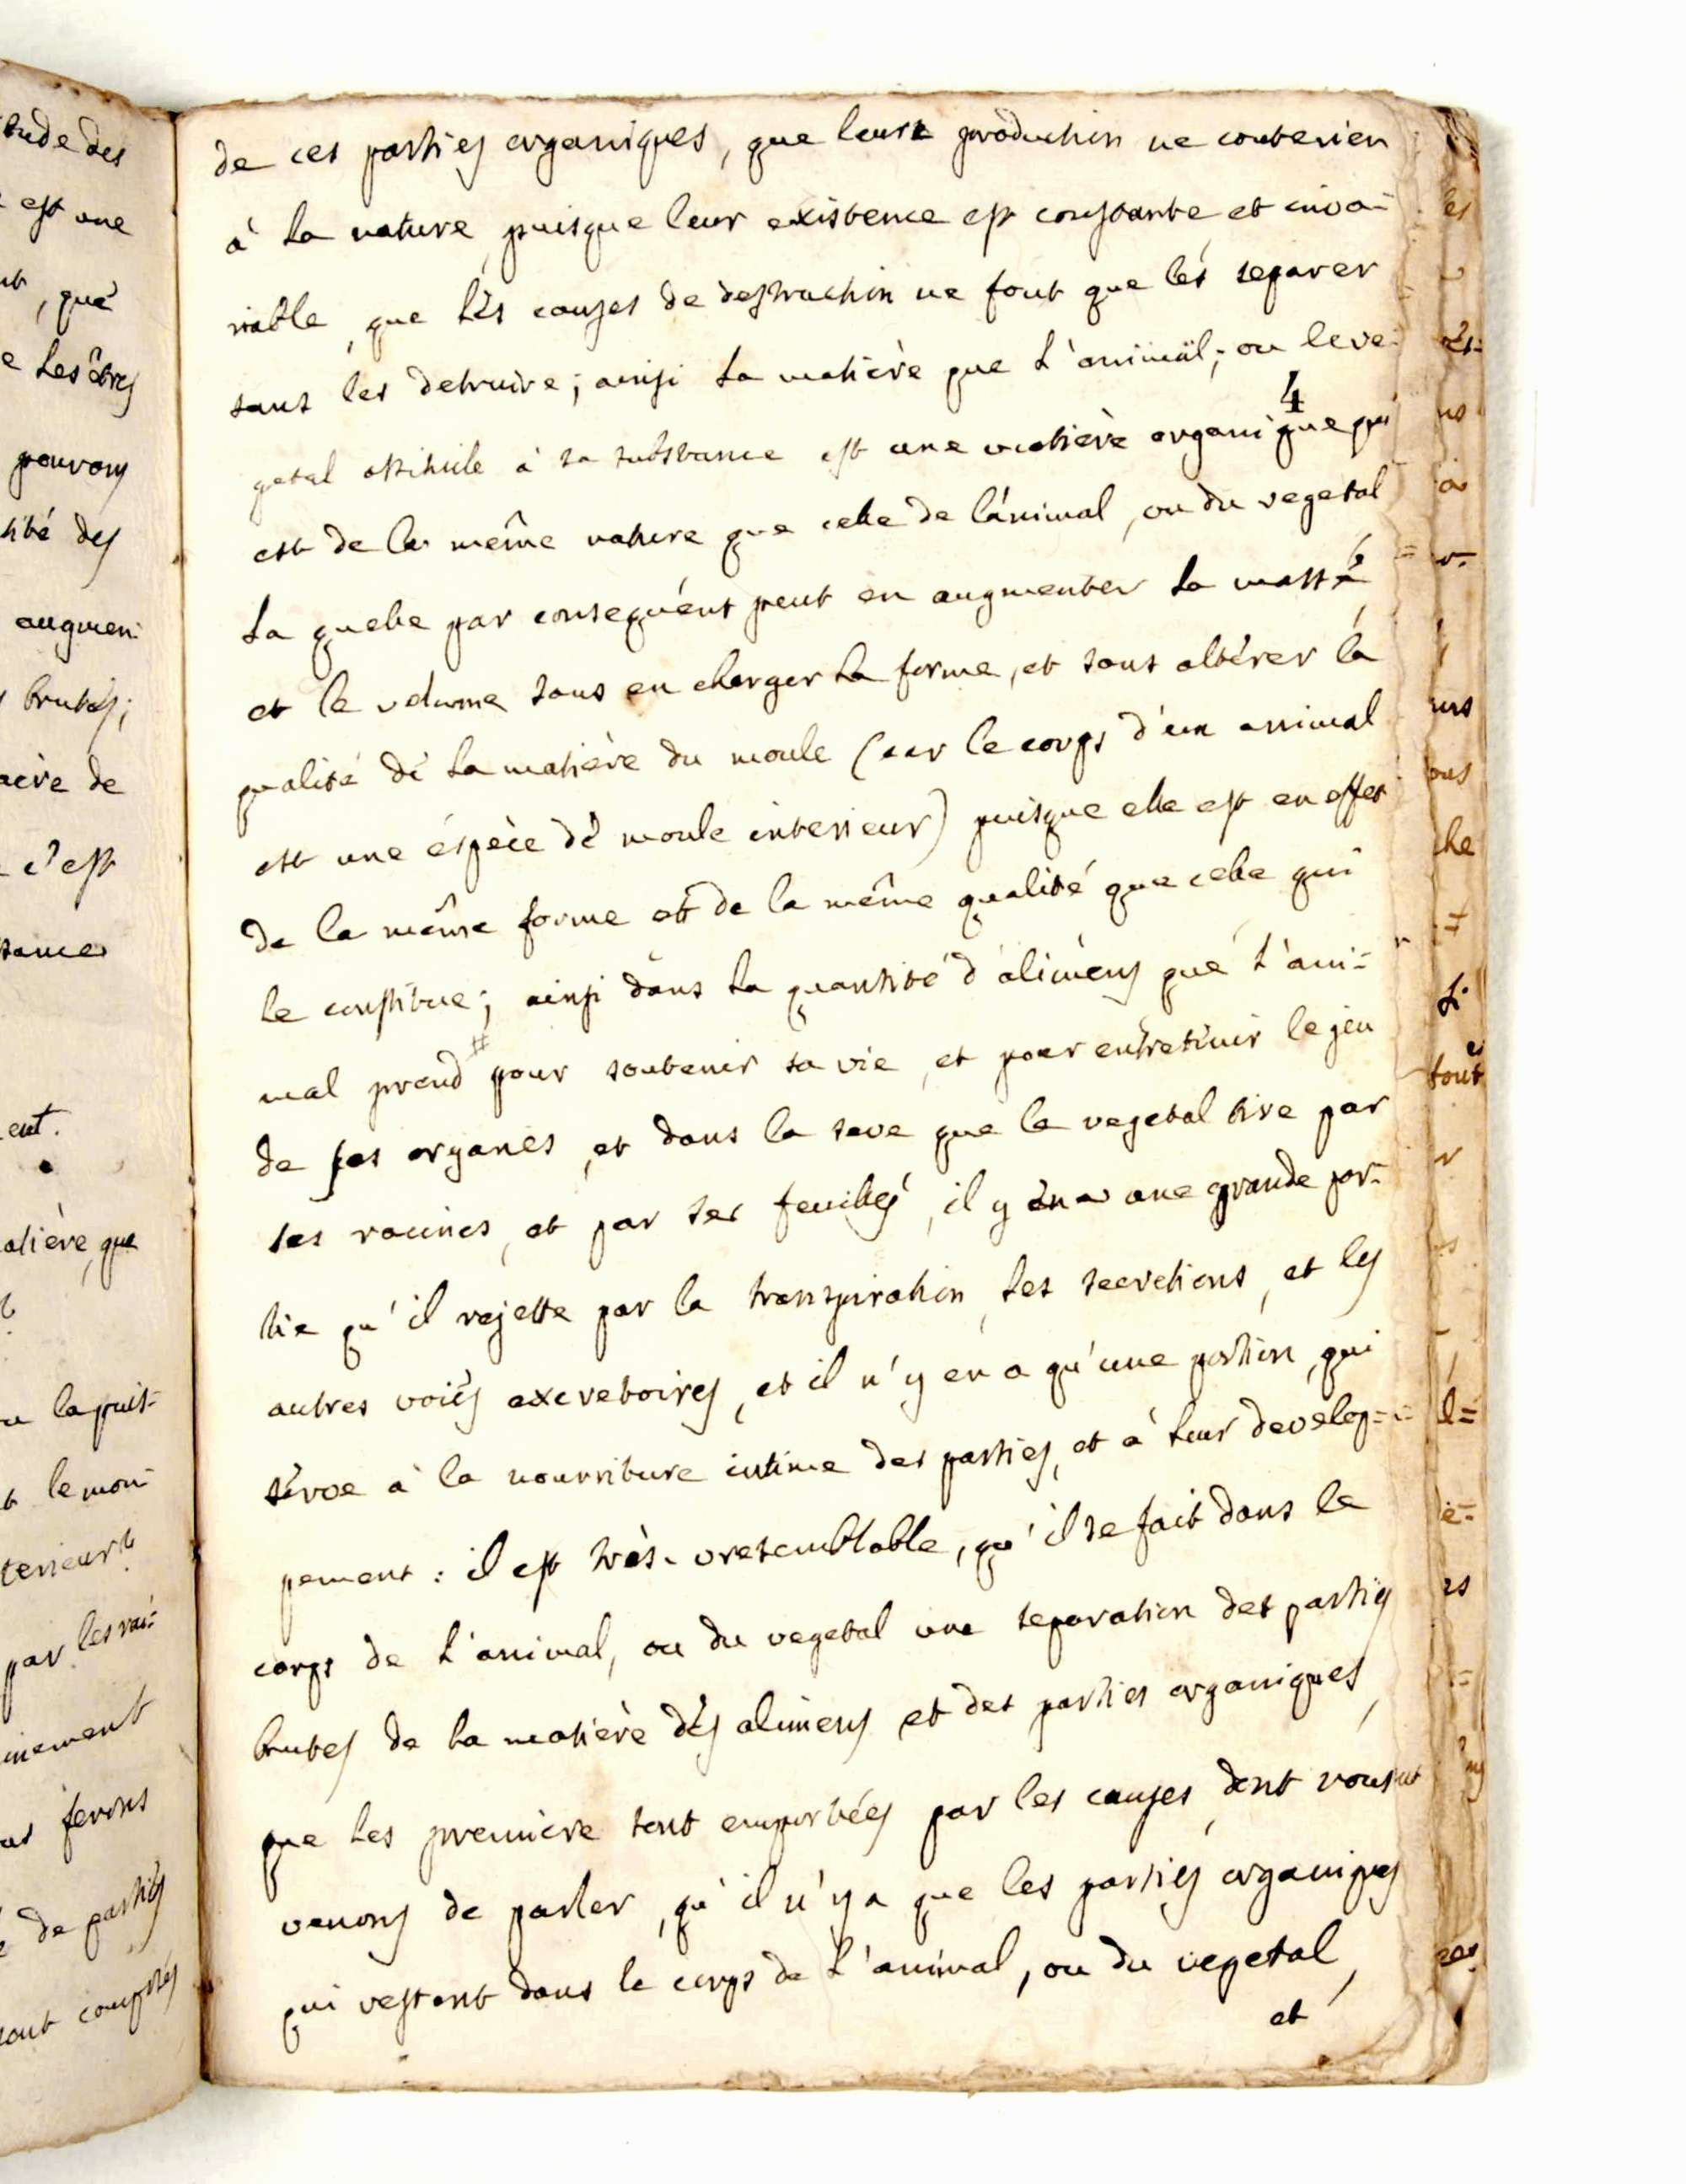 de ces parties organiques, que leur production ne coute rien
à la nature, puisque leur existence est constante et inva-
riable, que les causes de destruction ne font que les separer
sans les detruire; ainsi la matière que l'animal, ou le ve-
getal assimile à sa substance est une matière organique qui
4
est de la même nature que celle de l'animal, ou du vegetal
la quelle par consequent peut en augmenter la masse
et le volume sans en changer la forme, et sans altérer la
qualité de la matière du moule (car le corps d'un animal
est une éspèce de moule interieur) puisque elle est en effet
de la même forme et de la même qualité que celle qui
le constitue; ainsi dans la quantité d'alimens que l'ani=
mal prend # pour soutenir sa vie, et pour entretenir le jeu
de ses organes, et dans la seve que le vegetal tire par
ses racines, et par ses feuilles, il y en a une grande par=
tie qu'il rejette par la transpiration, les secretions, et les
autres voies excretoires, et il n'y en a qu'une portion, qui
serve à la nourriture intime des parties, et à leur develop=
pement: il est très-vresemblable, qu'il se fait dans le
corps de l'animal, ou du vegetal une separation des parties
brutes de la matière des alimens et des parties organiques,
que les premiere sont emportées par les causes, dont nous
venons de parler, qu'il n'y a que les parties organiques
qui restent dans le corps de l'animal, ou du vegetal,
et